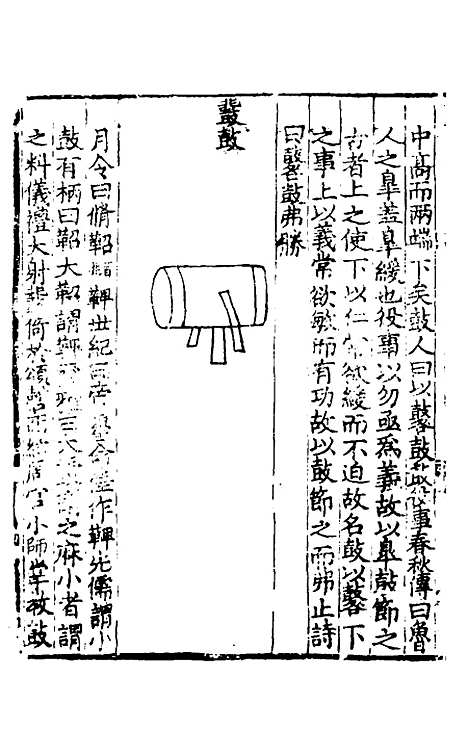 中高而兩端下矣鼓人曰以鼛鼓鼓役事春秋傳曰魯
人之皐蓋皐緩也役事以勿亟為義故以皐鼓節之
古者上之使下以仁常欲緩而不迫故名鼓以鼛下
之事上以義常欲敏而有功故以鼓節之而弗止詩
曰鼛鼓弗勝
鼙鼓
月令曰脩鞀鞞世紀曰帝嚳命作鞞先儒謂小
鼓有柄曰鞀大鞀謂鞞之麻小者謂
之料儀禮大射鼗倚於頌磬西紘周官小師掌教鼓